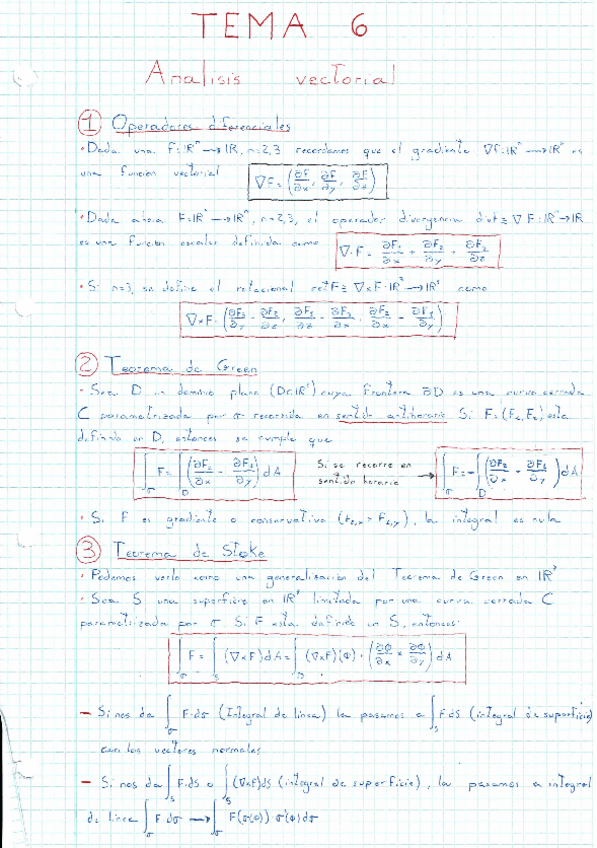 TEMA 6
Analisis vectorial
① Operadores diferenciales
• Dada una F:ℝⁿ→ℝ, n=2,3 recordamos que el gradiente ∇F:ℝⁿ→ℝⁿ es
una funcion vectorial ∇F = (∂F/∂x, ∂F/∂y, ∂F/∂z)
• Dada ahora F:ℝⁿ→ℝⁿ, n=2,3, el operador divergencia ∇F:ℝⁿ→ℝ
es una funcion escalar definida como ∇·F = ∂F₁/∂x + ∂F₂/∂y + ∂F₃/∂z
• Si n=3, se define el rotacional rotF ≡ ∇×F:ℝ³→ℝ³ como
∇×F = (∂F₃/∂y - ∂F₂/∂z, ∂F₁/∂z - ∂F₃/∂x, ∂F₂/∂x - ∂F₁/∂y)
② Teorema de Green
• Sea D un dominio plano (D⊂ℝ²) cuya frontera ∂D es una curva cerrada
C parametrizada por σ recorrida en sentido antihorario Si F=(F₁,F₂) esta
definida en D, entonces se cumple que
∫σ F = ∫D (∂F₂/∂x - ∂F₁/∂y) dA Si se recorre en sentido horario → ∫σ F = -∫D (∂F₂/∂x - ∂F₁/∂y) dA
• Si F es gradiente o conservativo, la integral es nula
③ Teorema de Stoke
• Podemos verlo como una generalización del Teorema de Green en ℝ³
• Sea S una superficie en ℝ³ limitada por una curva cerrada C
parametrizada por σ Si F esta definida en S, entonces:
∫σ F = ∫S (∇×F) dA = ∫D (∇×F)(Φ) · (∂Φ/∂x × ∂Φ/∂y) dA
– Si nos da ∫σ F·dσ (Integral de linea) la pasamos a ∫S F·dS (integral de superficie)
con los vectores normales
– Si nos da ∫S F·dS o ∫S (∇×F)dS (integral de superficie), la pasamos a integral
de linea ∫σ F dσ → ∫σ F(σ(θ))·σ'(θ)dσ